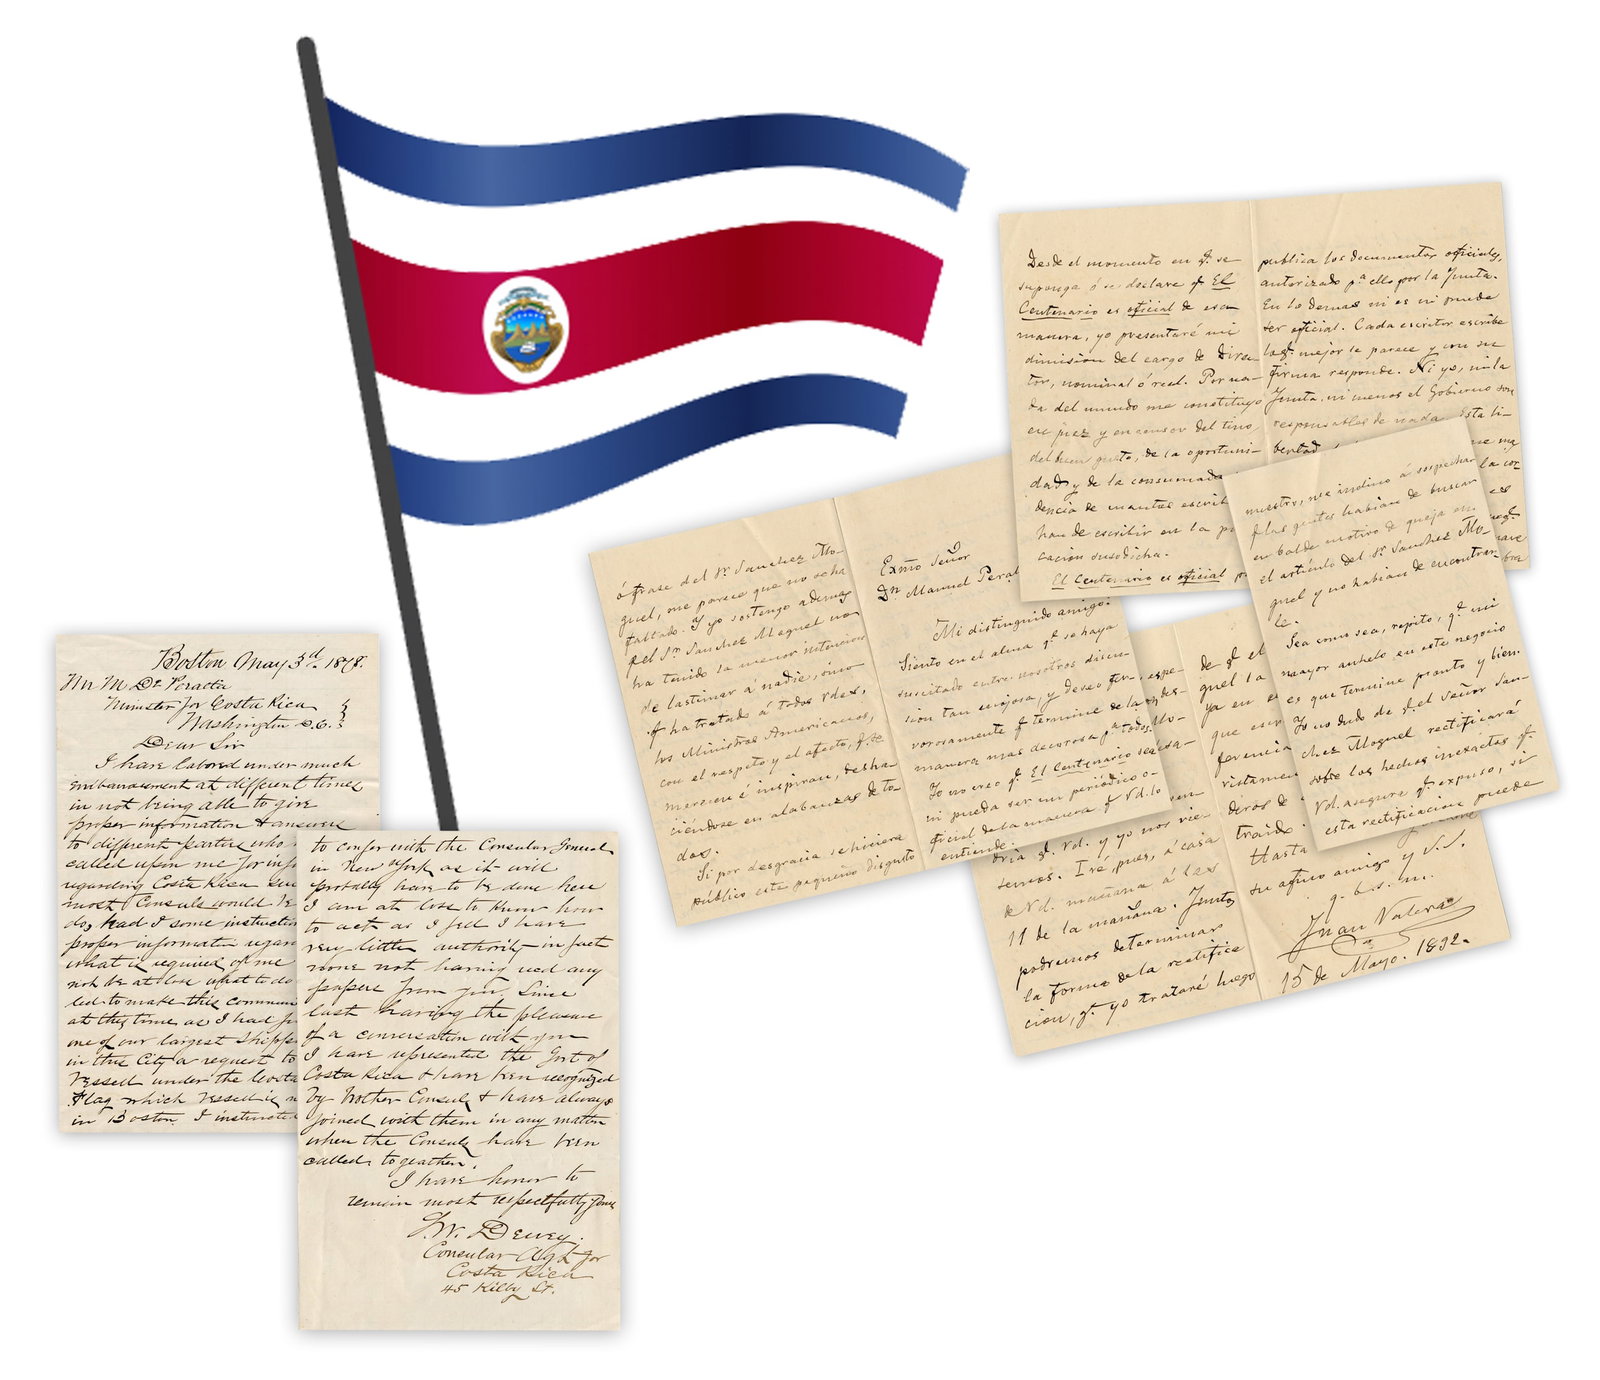 Boston May 3d. 1878.
Mr M. De Peracta
Minister for Costa Rica
Washington D.C.
Dear Sir
I have labored under much
Embarassment at different times
in not being able to give
proper information & answers
to different parties who
called upon me for inf
regarding Costa Rica
most Consuls would be
do, had I some instructio
proper information regar
what is required of me
not be at loss what to do
led to make this commun
at this time as I had
one of our largest shipp
in this City a request to
Vessel under the Costa
Flag which Vessel is n
in Boston. I instructed
to confer with the Consular General
in New York as it will
probably have to be done here
I am at loss to know how
to act as I feel I have
very little authority in fact
none not having recd any
papers from you. Since
last having the pleasure
of a conversation with you
I have represented the Govt of
Costa Rica & have been recognized
by brother Consuls & have always
joined with them in any matter
when the Consuls have been
called together.
I have honor to
remain most respectfully yours
F.W. Dewey.
Consular Agt for
Costa Rica
45 Kilby St.
ó frase del Sr. Sanchez Mo-
guel, me parece que no se ha
faltado. Y yo sostengo ademas
q el Sr. Sanchez Moguel no
ha tenido la menor intencion
de lastimar á nadie, sino
q ha tratado á todos Vdes,
los Ministros Americanos,
con el respeto y el afecto, q se
merecen é inspiran, desha-
ciéndose en alabanzas de to-
dos.
Si por desgracia se hiciera
público este pequeño disgusto
Exmo Señor
Dn Manuel Peral
Mi distinguido amigo:
Siento en el alma q. se haya
suscitado entre nosotros discu-
sion tan enojosa, y deseo fer-
vorosamente q termine de la
manera mas decorosa pa todos.
Yo no creo q. El Centenario sea
ni pueda ser un periódico o-
ficial de la manera q Vd. lo
entiende.
Desde el momento en q. se
suponga ó se declare q El
Centenario es oficial de esa
manera, yo presentaré mi
dimision del cargo de Direc-
tor, nominal ó real. Por na-
da del mundo me constituyo
en juez y en censor del tino,
del buen gusto, de la oportuni-
dad y de la consumada
dencia de cuantos escrib
han de escribir en la p
cacion susodicha.
El Centenario es oficial p
publica los documentos oficiales,
autorizado pa ello por la Junta.
En lo demas ni es ni puede
ser oficial. Cada escritor escribe
lo q. mejor le parece y con su
firma responde. Ni yo, ni la
Junta, ni menos el Gobierno son
responsables de nada. Esta li-
bertad
nuestro, me inclino á sospechar
q las gentes habian de buscar
en balde motivo de queja en
el artículo del Sr Sanchez Mo-
guel y no habian de encontrar-
le.
Sea como sea, repito, q. mi
mayor anhelo en este negocio
es que termine pronto y bien.
Yo no dudo de q. el Señor San-
chez Moguel rectificará
sobre los hechos inexactos q.
Vd. asegura q. expuso, si
esta rectificacion puede
dria q. Vd. y yo nos vie-
semos. Iré, pues, á casa
de Vd. mañana á las
11 de la mañana. Juntos
podremos determinar
la forma de la rectifica
cion, q. yo trataré luego
de q. el
guel
ya en
que
ferencia
vistamen
deros de
traido.
Hasta
su afmo amigo y S.S.
q. b. s. m.
Juan Valera
15 de Mayo. 1892.